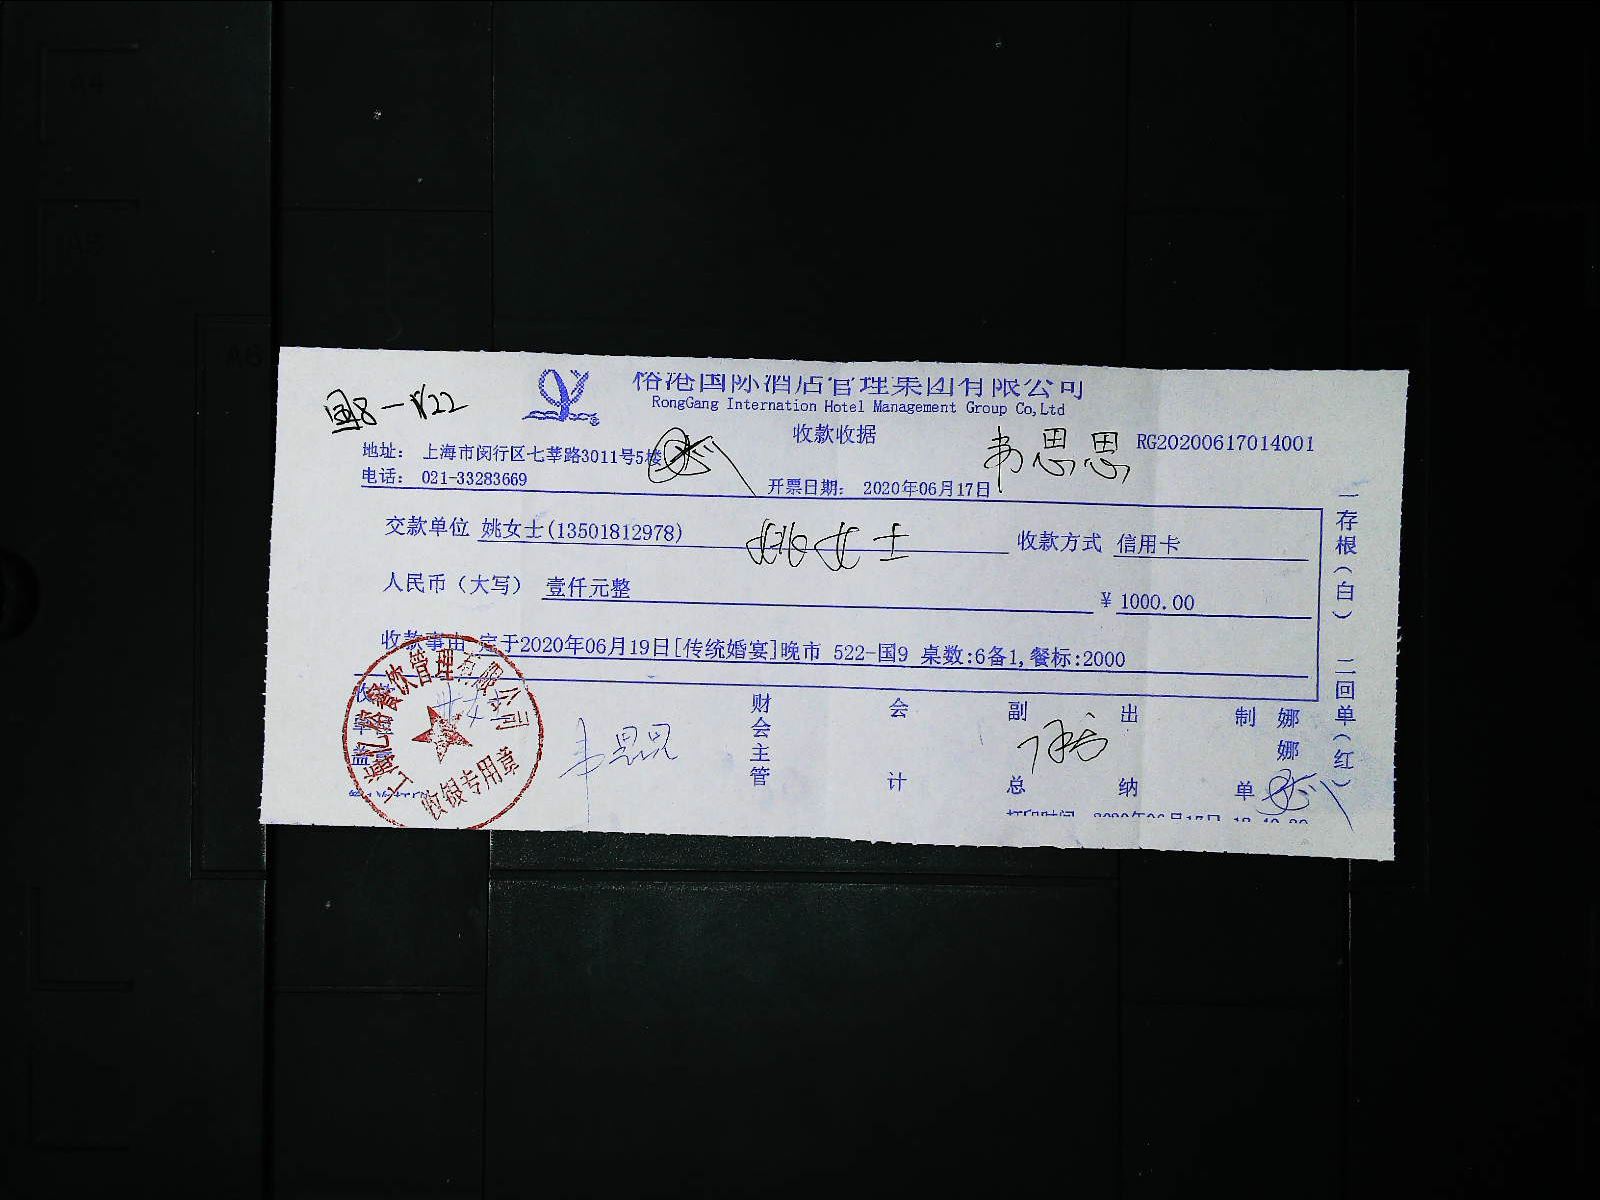 國8-1/22
榕港国际酒店管理集团有限公司
RongGang Internation Hotel Management Group Co,Ltd
收款收据
韦思思
RG20200617014001
地址： 上海市闵行区七莘路3011号5楼
电话： 021-33283669
开票日期： 2020年06月17日
交款单位 姚女士(13501812978)
姚女士
收款方式 信用卡
人民币（大写） 壹仟元整
¥ 1000.00
收款事由 定于2020年06月19日[传统婚宴]晚市 522-国9 桌数:6备1,餐标:2000
财会主管
会计
副总
出纳
制单
娜娜
韦思思
上海亿榕餐饮管理有限公司
收银专用章
打印时间 2020年06月17日
一存根（白） 二回单（红）